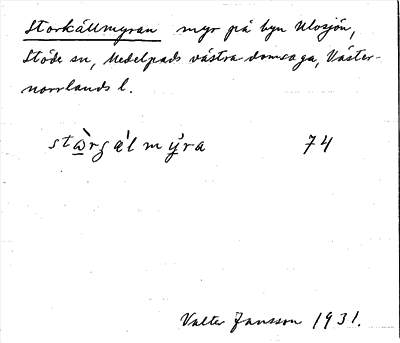 Storkällmyran myr på byn Ulosjön,
Stöde sn, Medelpads västra domsaga, Väster-
norrlands l.
stὼrgǽlmy̌ra 74
Valter Jansson 1931.